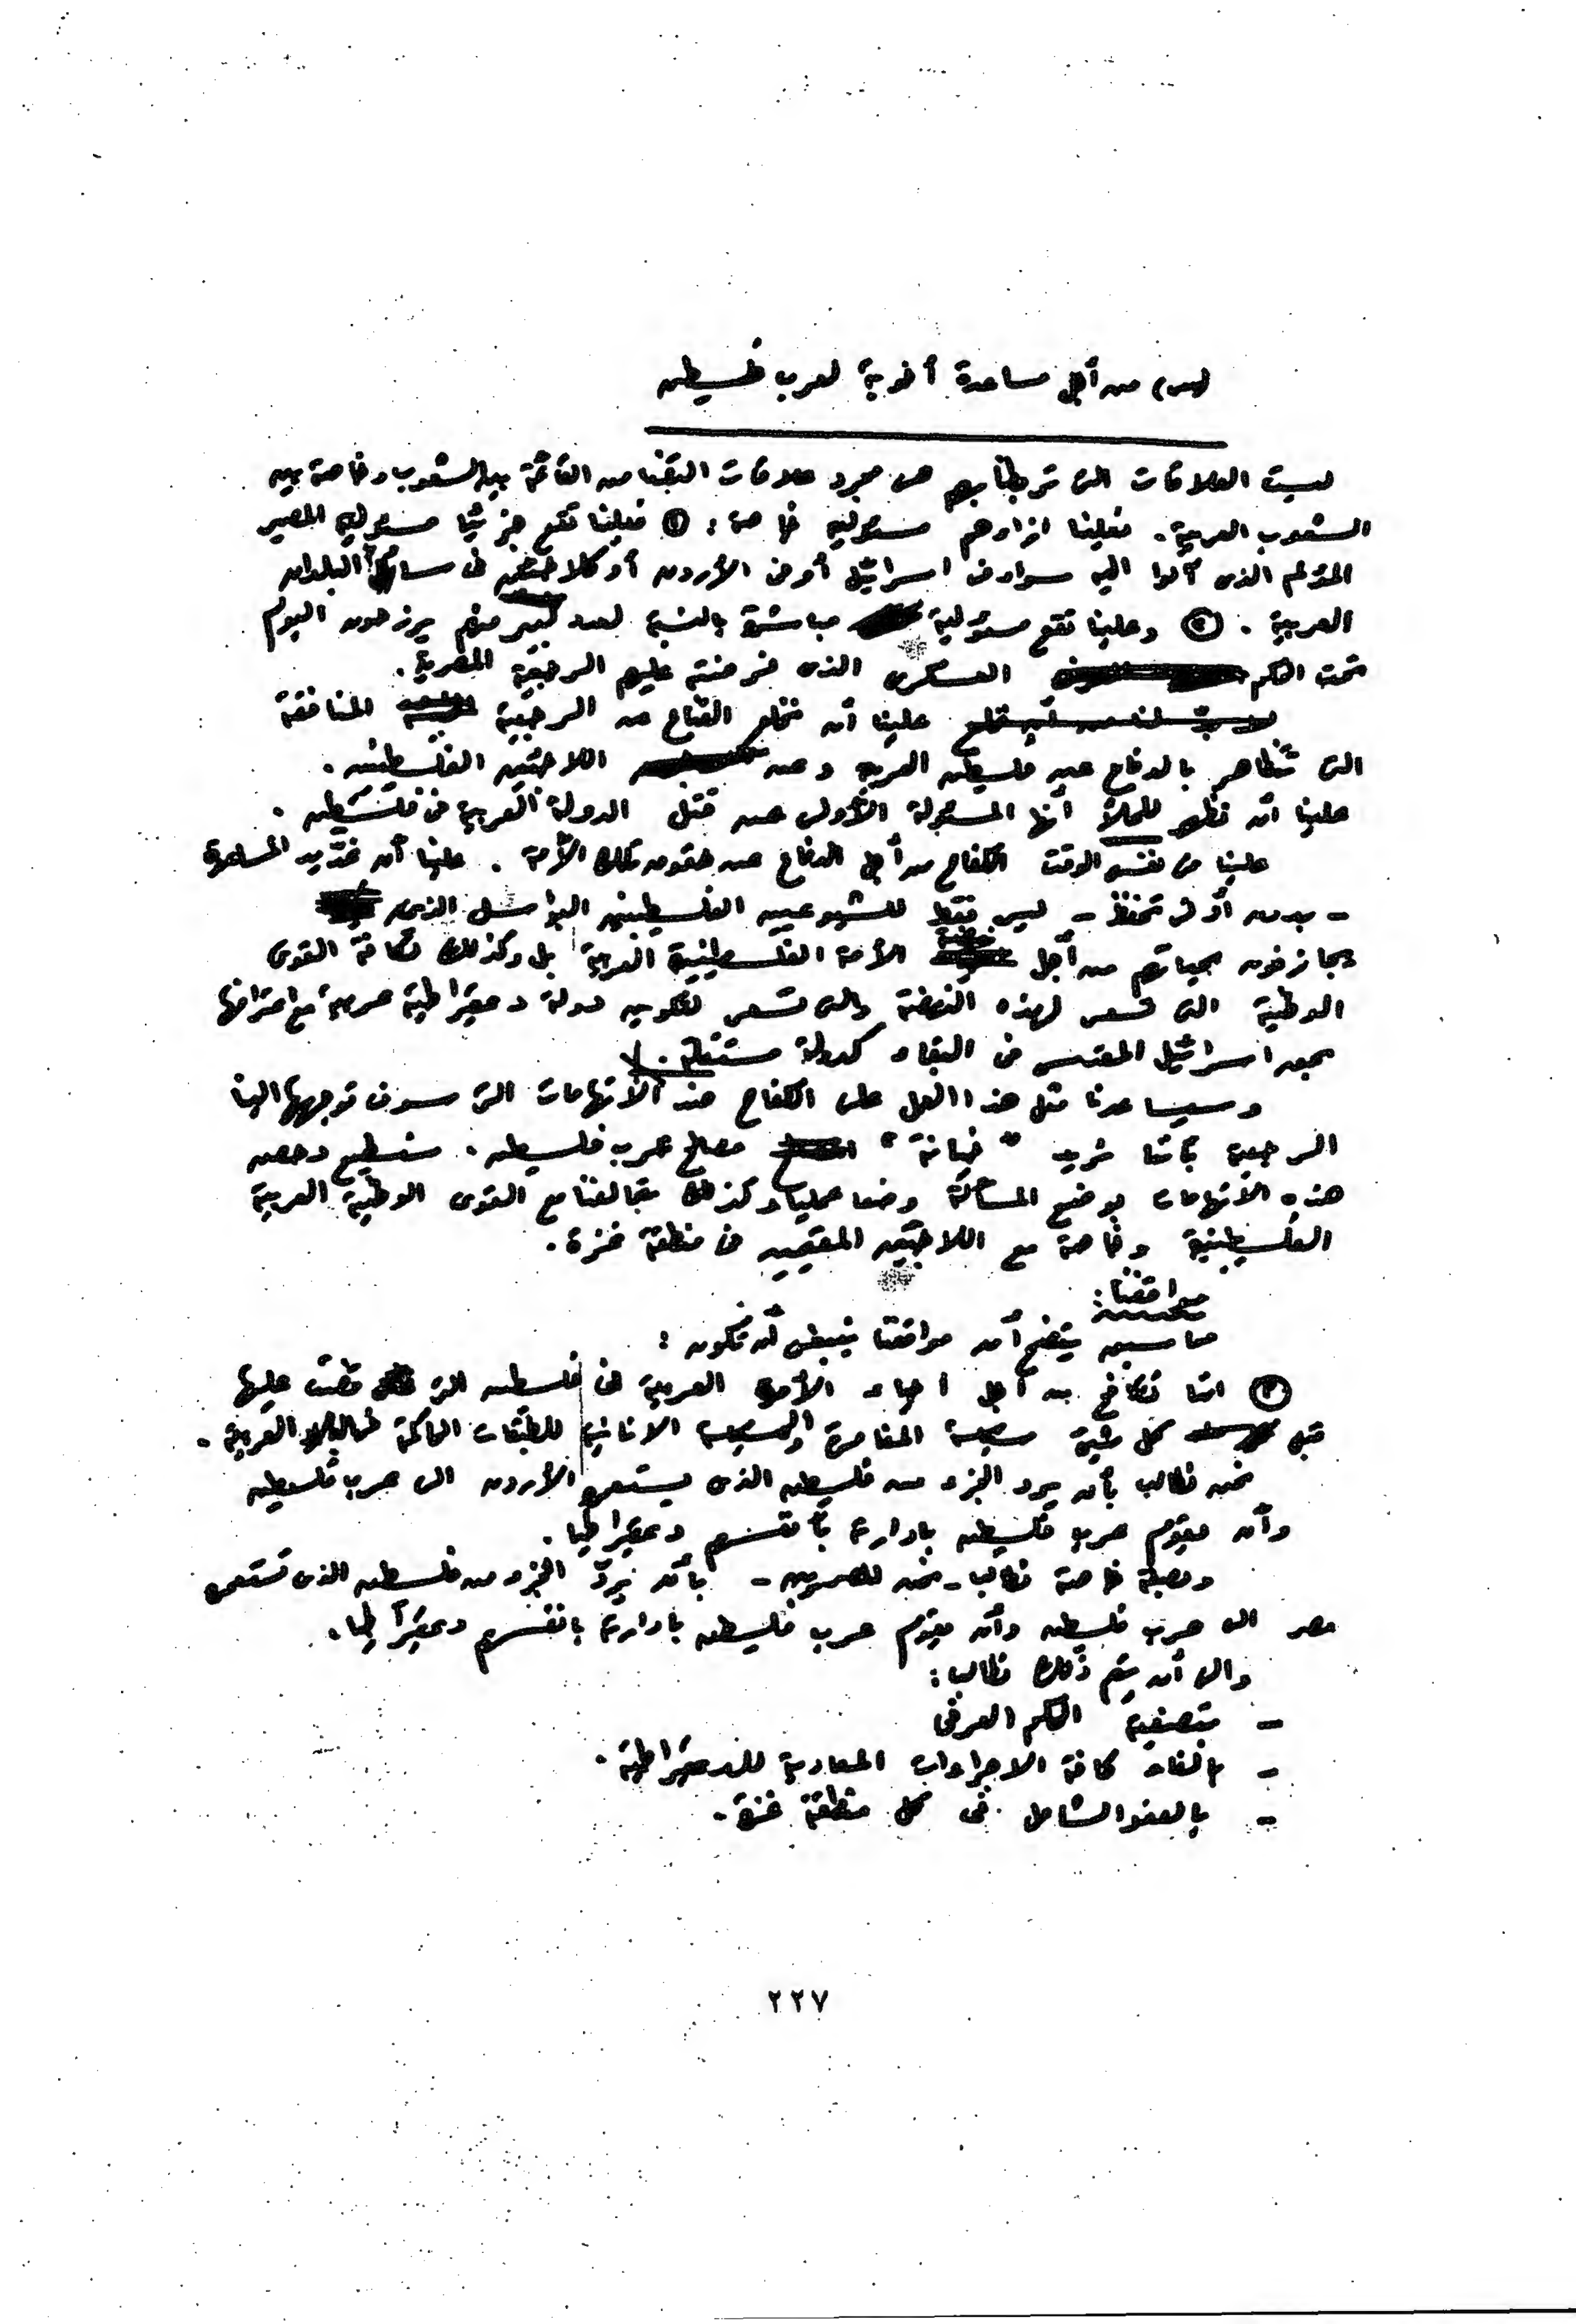 (س) من أجل مساعدة أخوية لعرب فلسطين
ليست العلاقات التى تربطنا بهم هى مجرد علاقات التضامن القائمة بين الشعوب وخاصة بين
الشعوب العربية. فعلينا ازاءهم مسئولية خاصة: ① فعلينا تقع جزئيا مسئولية المصير
المؤلم الذى آلوا اليه سواء فى اسرائيل أو فى الأردن أو كلاجئين فى سائر البلدان
العربية. ② وعلينا تقع مسئولية مباشرة بالنسبة لعدد كبير منهم يرزحون اليوم
تحت الحكم العسكرى الذى فرضته عليهم الرجعية المصرية.
علينا أن نخلع القناع عن الرجعية المنافقة
التى تتظاهر بالدفاع عن فلسطين العربية وعن اللاجئين الفلسطينيين.
علينا أن نظهر للملأ أنها المسئولة الأولى عن قتل الدولة العربية فى فلسطين.
علينا فى نفس الوقت الكفاح من أجل الدفاع عن حقوق تلك الأمة. علينا أن نقدم المساعدة
- بدون أدنى تحفظ - ليس فقط للشيوعيين الفلسطينيين البواسل الذين
يجازفون بحياتهم من أجل الأمة الفلسطينية العربية بل وكذلك لكافة القوى
الوطنية التى تسعى لهذه النهضة والتى تسعى لتكوين دولة ديمقراطية عربية مع اعترافها
بحق اسرائيل المقدس فى البقاء كدولة مستقلة.
وسيساعدنا مثل هذا العمل على الكفاح ضد الاتهامات التى سوف توجهها الينا
الرجعية بأننا نريد "خيانة" مصالح عرب فلسطين. سنستطيع دحض
هذه الاتهامات بوضع المسألة وضعا عمليا وكذلك بتحالفنا مع القوى الوطنية العربية
الفلسطينية وخاصة مع اللاجئين المقيمين فى منطقة غزة.
مواقفنا:
مما سبق يتضح أن مواقفنا ينبغى أن تكون:
① اننا نكافح من أجل احياء الأمة العربية فى فلسطين التى قضت عليها
قبل كل شئ سياسة المغامرة والسياسة الانانية للطبقات الحاكمة فى البلاد العربية.
نحن نطالب بأن يرد الجزء من فلسطين الذى يستعمره الأردن الى عرب فلسطين
وأن يقوم عرب فلسطين بادارته بأنفسهم ديمقراطيا.
وبصفة خاصة نطالب - نحن المصريين - بأن يرد الجزء من فلسطين الذى تستعمره
مصر الى عرب فلسطين وأن يقوم عرب فلسطين بادارته بانفسهم ديمقراطيا.
والى أن يتم ذلك نطالب:
- بتصفية الحكم العرفى
- بالغاء كافة الاجراءات المعادية للديمقراطية.
- بالعفو الشامل فى كل منطقة غزة.
٢٢٧